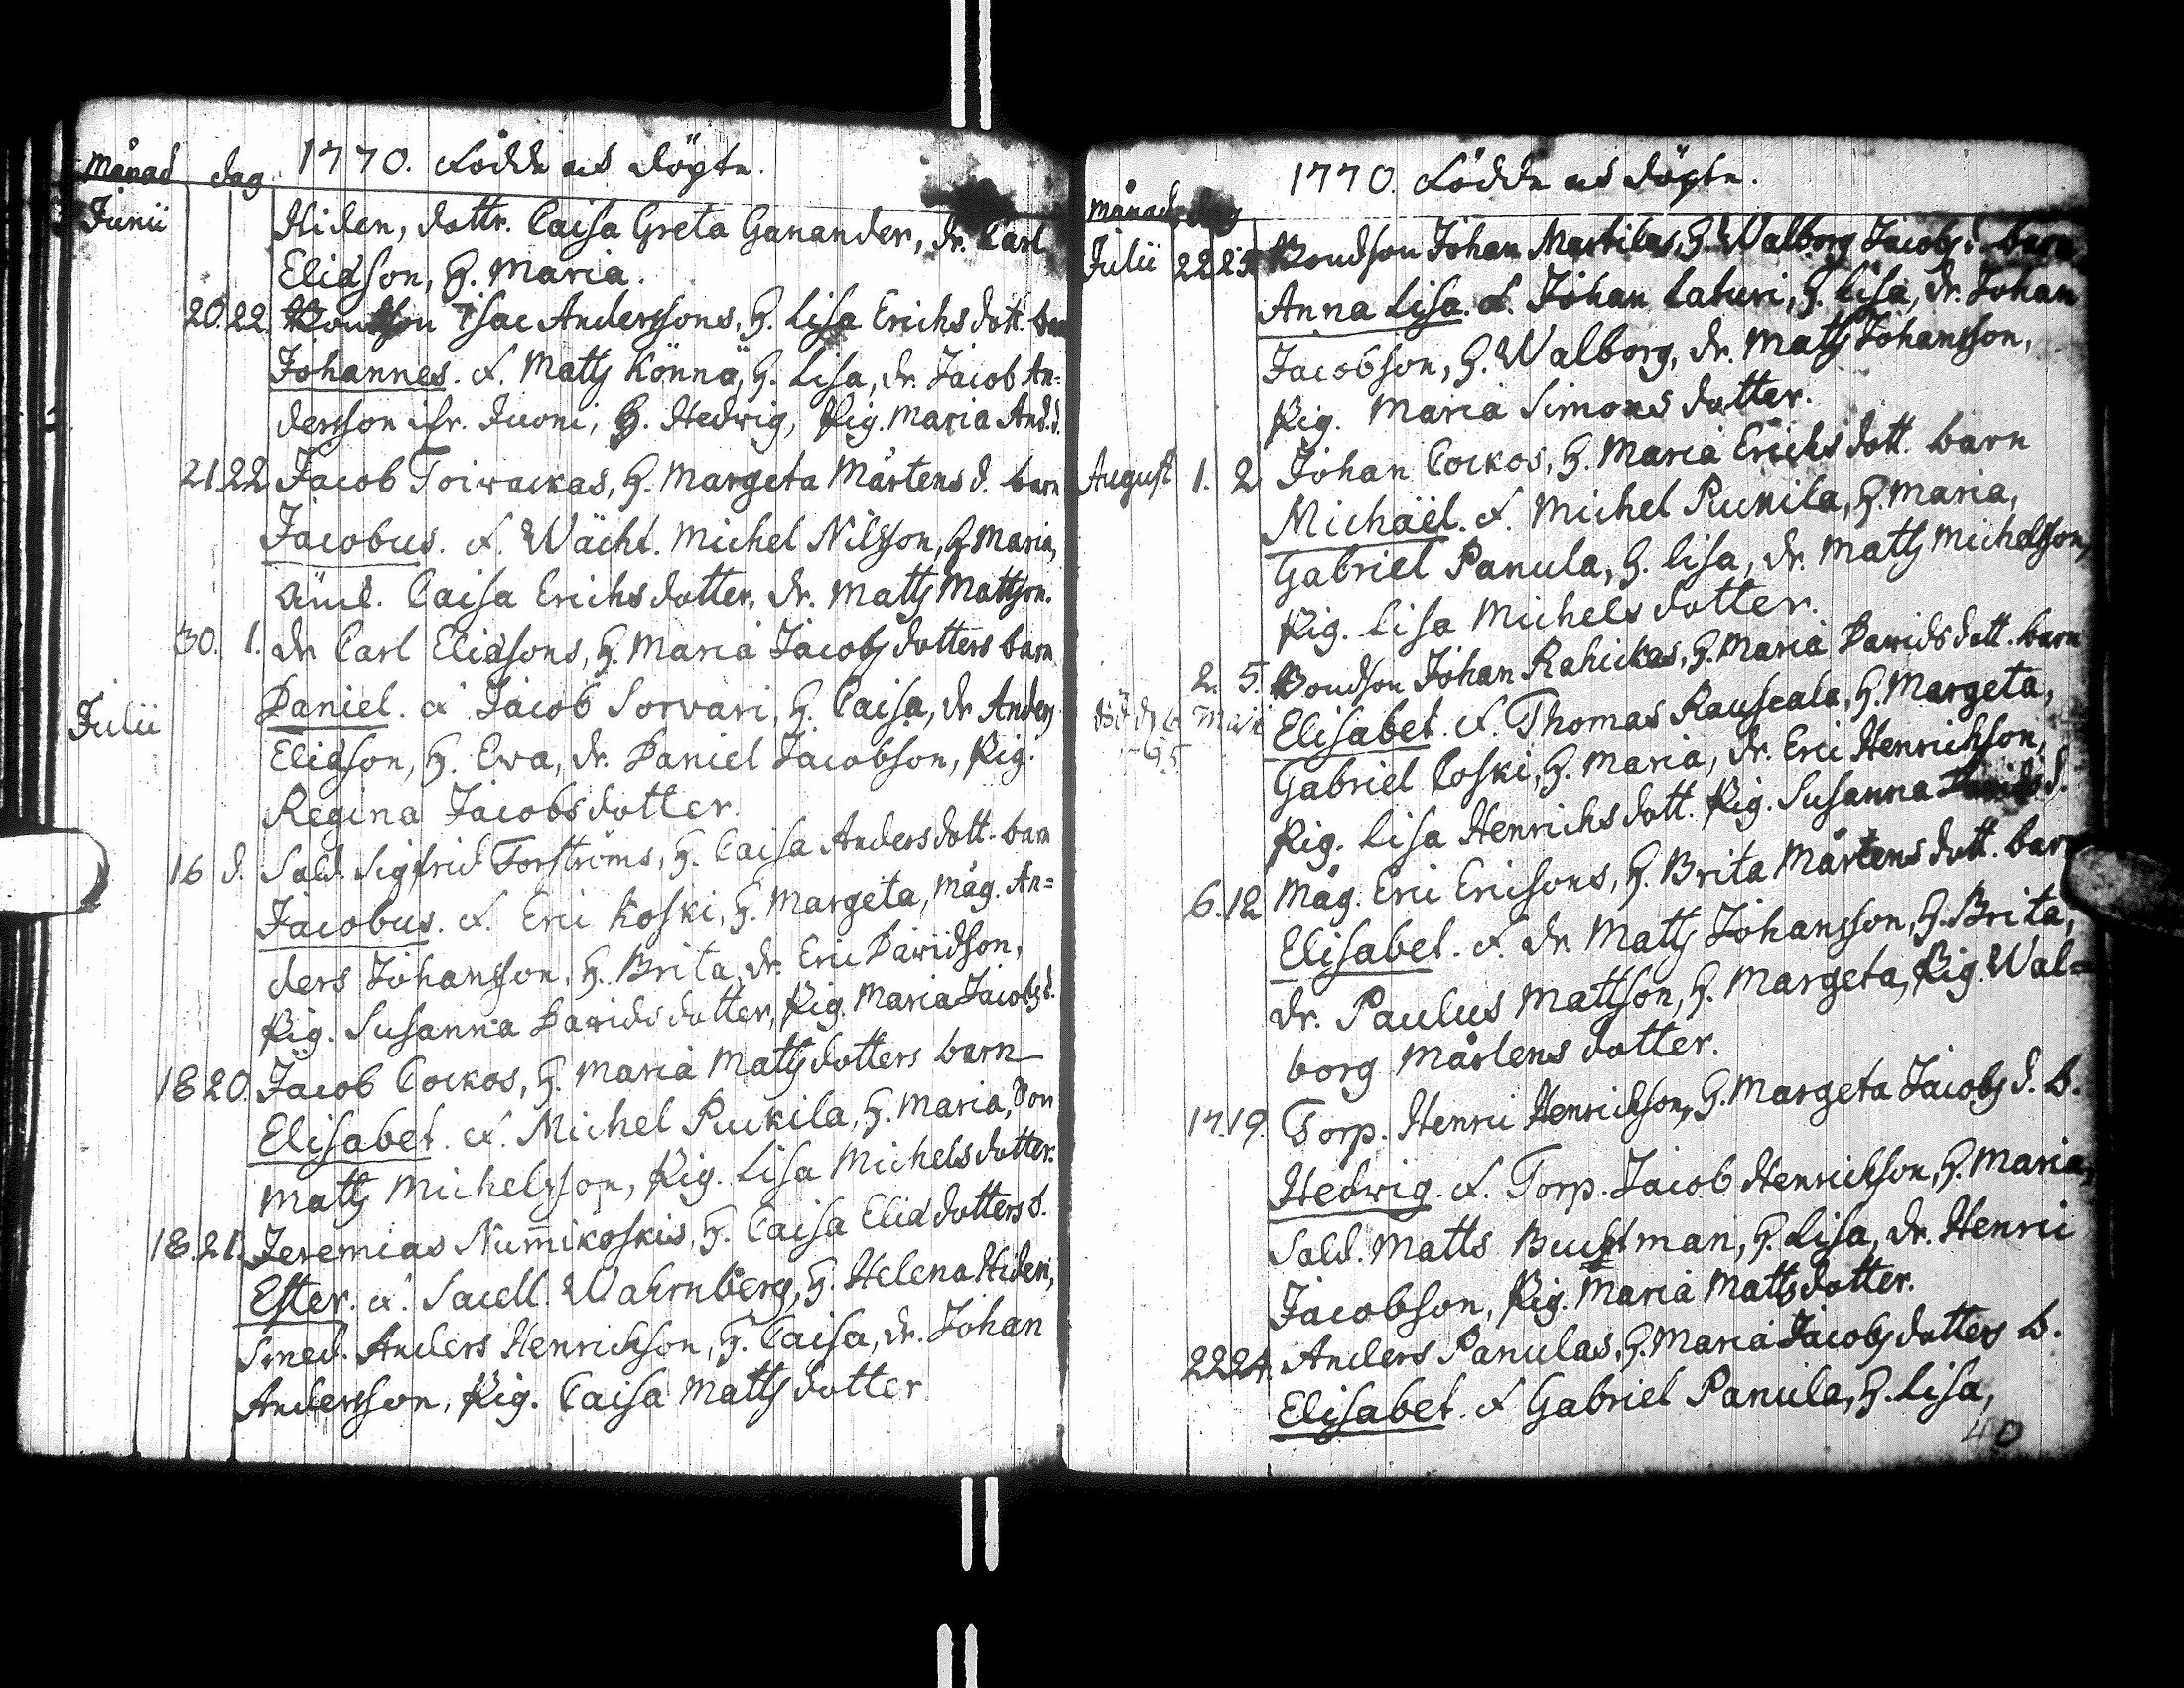 Månad dag 1770. Födde och döpte.
Junii Hiden, dottr. Caisa Greta Ganander, dr. Carl
Eliasson, H. Maria.
20. 22. Bondson Isac Anderssons, H. Lisa Erichs dott. barn
Johannes. f. Matts Könnä, H. Lisa, dr. Jacob An=
dersson ifr. Juoni, H. Hedwig, Pig. Maria And.d.
21 22 Jacob Toiwackas, H. Margeta Mårtens d. barn
Jacobus. f. Wächt. Michel Nilsson, H. Maria,
Caisa Erichs dotter, dr. Matts Mattson.
30. 1. dr. Carl Eliassons, H. Maria Jacobs dotters barn
Julii Daniel. f. Jacob Sorvari, H. Caisa, dr. Anders
Eliasson, H. Ewa, dr. Daniel Jacobson, Pig.
Regina Jacobs dotter.
16 d. Sold. Sigfrid Forströms, H. Caisa Anders dott. barn
Jacobus. f. Eric Koski, H. Margeta, Måg. An=
ders Johansson, H. Brita, dr. Eric Davidson,
Pig. Susanna Davids dotter, Pig. Maria Jacobs d.
18 20. Jacob Cockos, H. Maria Matts dotters barn
Elisabet. f. Michel Puckila, H. Maria, Son
Matts Michelsson, Pig. Lisa Michels dotter.
18. 21. Jeremias Num̄ikoskis, H. Caisa Elia dotters b.
Ester. f. Sacell. Wahrnberg, H. Helena Hiden,
Smed. Anders Henrichson, H. Caisa, dr. Johan
Andersson, Pig. Caisa Matts dotter
1770. Födde och döpte.
Månad dag
Julii 22 Bondson Johan Martilas, H. Walborg Jacobs d. barn
Anna Lisa. f. Johan Caturi, H. Lisa, dr. Johan
Jacobson, H. Walborg, dr. Matts Johansson,
Pig. Maria Simons dotter.
August 1. 2 Johan Cockos, H. Maria Erichs dott. barn
Michaël. f. Michel Puckila, H. Maria,
Gabriel Panula, H. Lisa, dr. Matts Michelsson,
Pig. Lisa Michels dotter.
2. 5. Bondson Johan Rahickas, H. Maria Davids dott. barn
Maji Elisabet. f. Thomas Rauscala, H. Margeta,
Gabriel Coski, H. Maria, dr. Eric Henrichson,
Pig. Lisa Henrichs dott. Pig. Susanna Davids d.
6. 12 Måg. Eric Ericsons, H. Brita Mårtens dott. barn
Elisabet. f. dr. Matts Johansson, H. Brita,
dr. Paulus Mattson, H. Margeta, Pig. Wal=
borg Mårtens dotter.
17. 19. Torp. Henric Henrichson, H. Margeta Jacobs d. b.
Hedwig. f. Torp. Jacob Henrichson, H. Maria,
Sold. Matts Buchtman, H. Lisa, dr. Henric
Jacobson, Pig. Maria Matts dotter.
22 24. Anders Panulas, H. Maria Jacobs dotters b.
Elisabet. f. Gabriel Panula, H. Lisa,
40